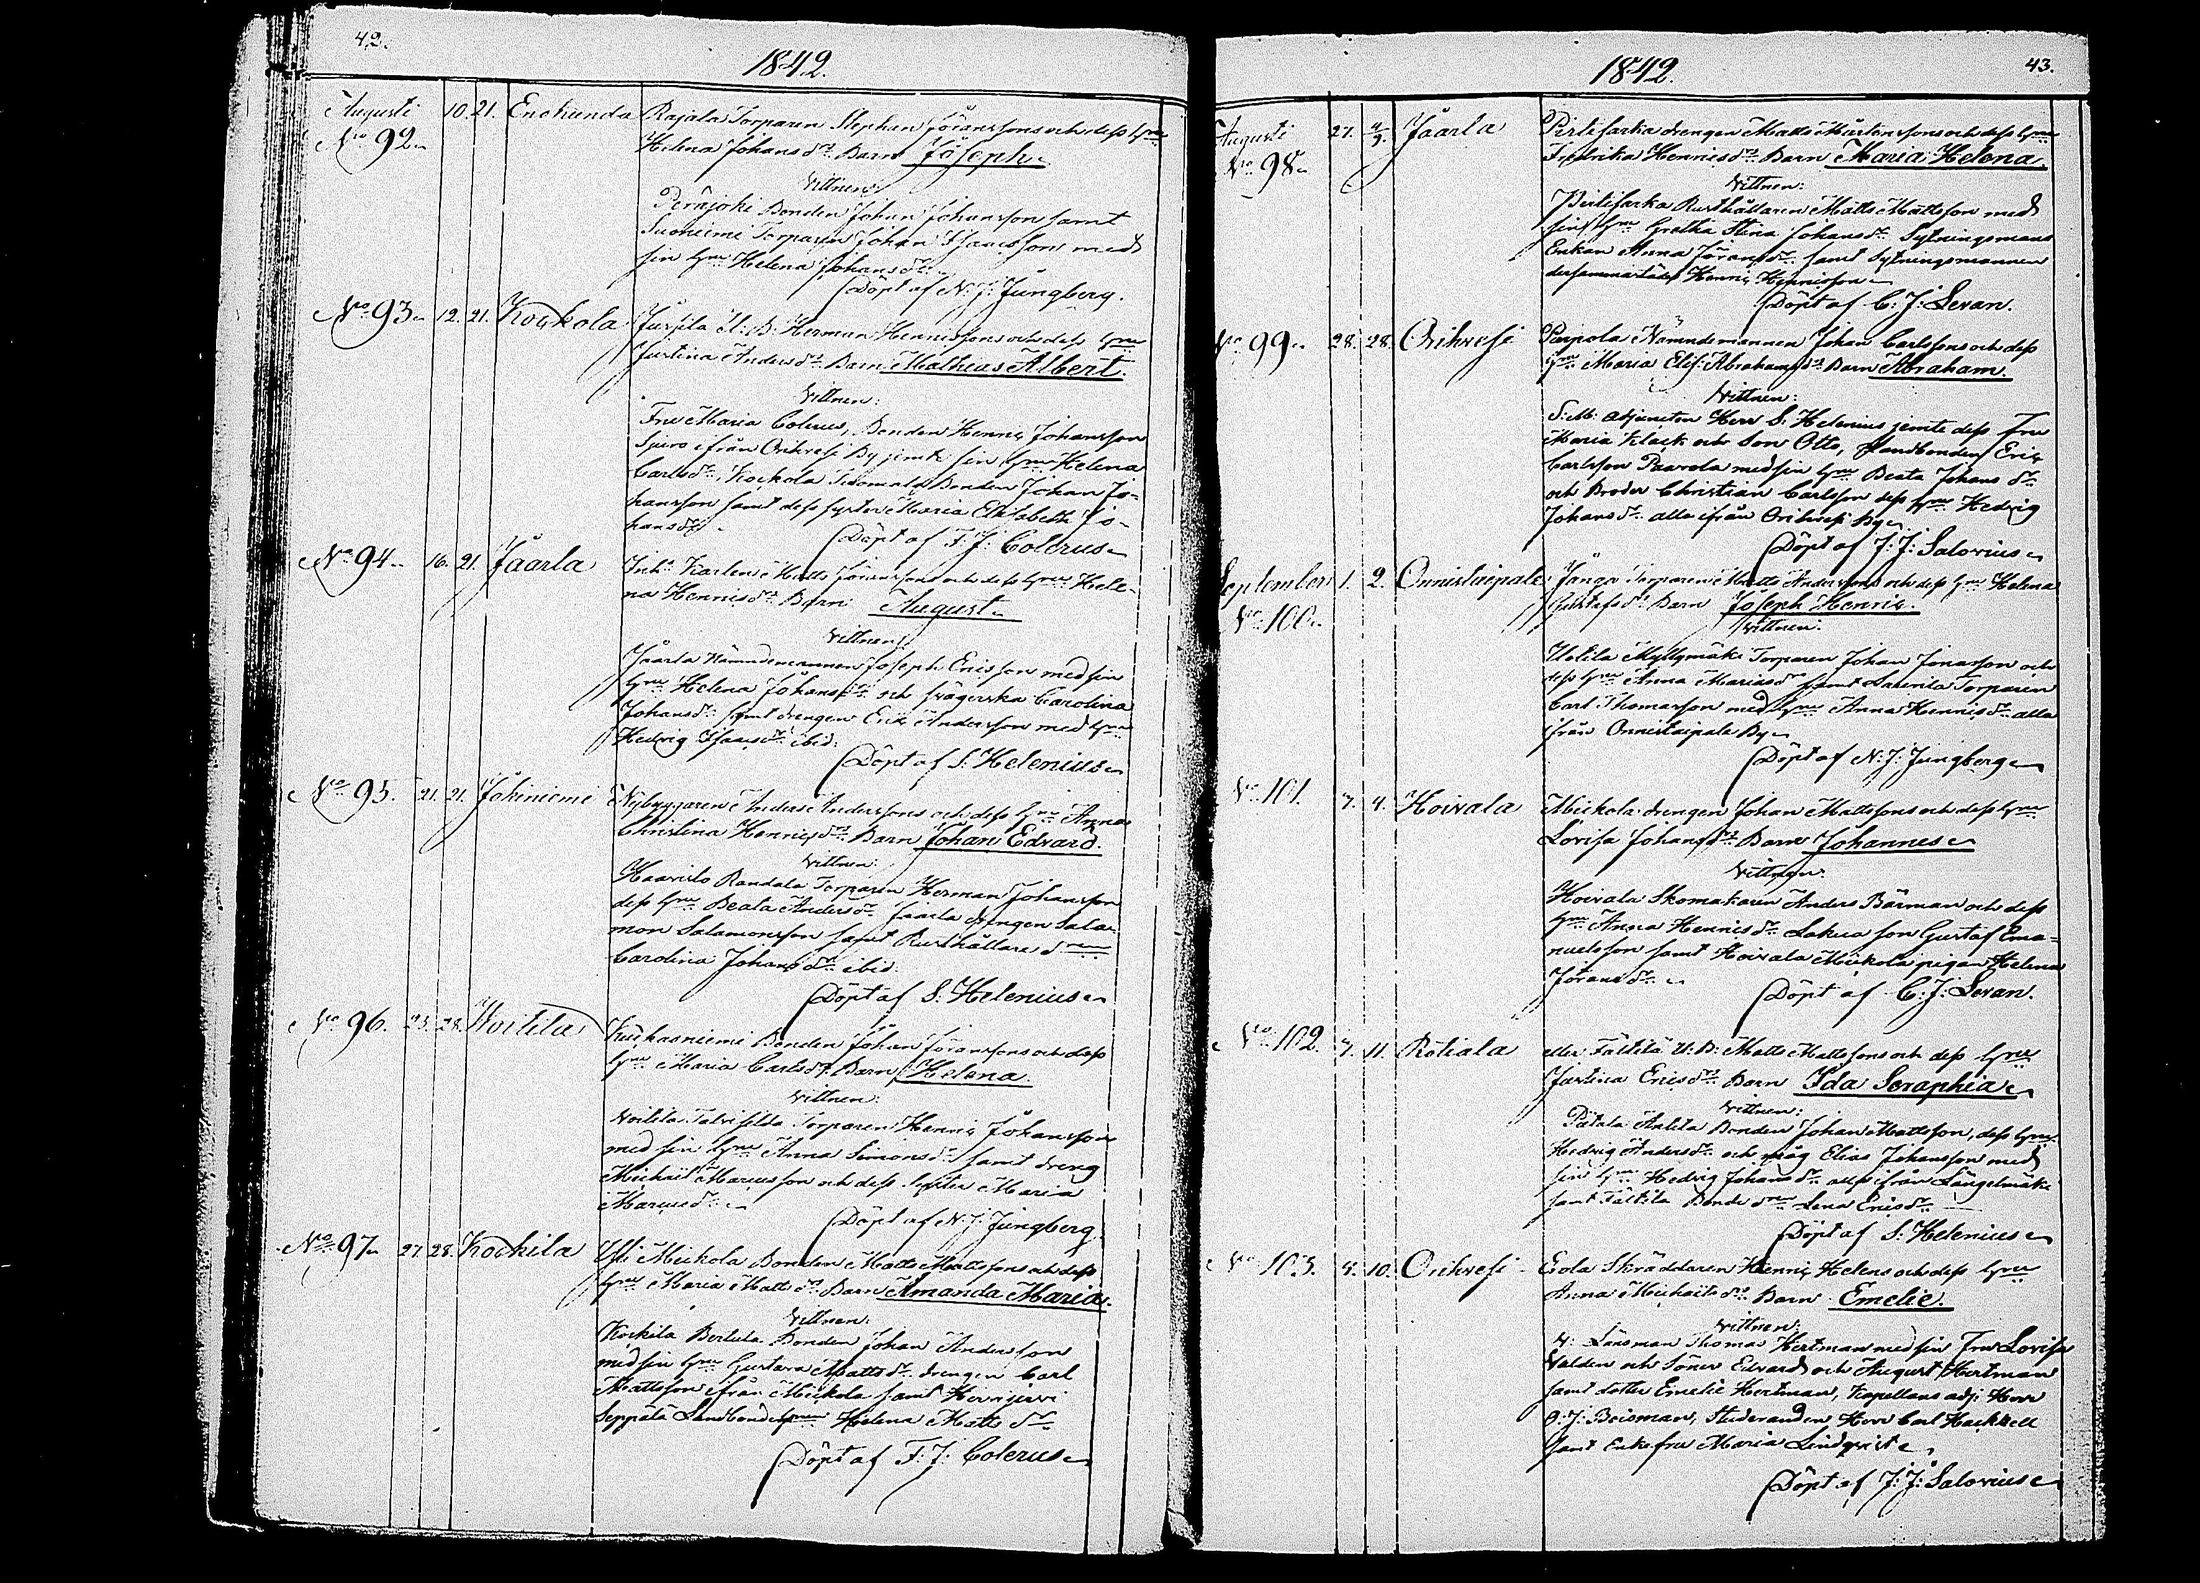 42.
1842.
Augusti 10. 21. Enokunda Rajala Torparen Stephan Jöranssons och dess hru
No 92. Helena Johansdr Barn Joseph
Vittnen:
Peräjoki Bonden Johan Johansson samt
Suoniemi Torparen Johan Isaacsson med
sin hru Helena Johansdr
Döpt af N: J: Ljungberg.
No 93. 12. 21. Kockola Jussila U: B: Herman Henricssons och dess hru
Justina Andersdr Barn Matheus Albert.
Vittnen:
Fru Maria Colerus, Bonden Henric Johansson
ifrån Orihvesi By jemte sin hru Helena
Carlsdr, Kockola Bonden Johan Jo-
hansson samt dess syster Maria Elisabeth Jo-
hansdr
Döpt af F: J: Colerus
No 94. 16. 21. Jäärla Inh. Karlen Matts Jöranssons och dess hru Hele-
na Henricsdr Barn August
Vittnen:
Jäärla Nämndemannen Joseph Ericsson med sin
hru Helena Johansdr och svägerska Carolina
Johansdr samt drengen Eric Andersson med hru
Hedvig Isaacsdr ibid.
Döpt af S: Helenius
No 95. 21. 21. Johiniemi Nybyggaren Anders Anderssons och dess hru Anna
Christina Henricsdr Barn Johan Edvard.
Vittnen:
Haavisto Randala Torparen Herman Johansson
dess hru Beata Andersdr Jäärla drengen Salo-
mon Salomonsson samt Rusthållare dren
Carolina Johansdr ibid.
Döpt af S: Helenius
No 96. 23. 28. Voitila Kuhasniemi Bonden Johan Jöranssons och dess
hru Maria Carlsdr Barn Helena.
Vittnen:
Voitila Torparen Henric Johansson
med sin hru Anna Simonsdr samt dreng
Michail Marcusson och dess syster Maria
Marcusdr
Döpt af N: J: Ljungberg.
No 97. 27. 28. Kockila Yli Mickola Bonden Matts Mattssons och dess
hru Maria Mattsdr Barn Amanda Maria.
Vittnen:
Kockila Bertula Bonden Johan Andersson
med sin hru Gustava Mattsdr drengen Carl
Mattsson ifrån Mickola samt
Seppälä Landbondehrun Helena Mattsdr
Döpt af F: J: Colerus
1842. 43.
Augusti 27. 4/9. Jäärla Pirlisarka drengen Matts Mårtenssons och dess hru
No 98. Fredrika Henricsdr Barn Maria Helena.
Vittnen:
Pirlisarka Rusthållaren Matts Mattsson med
sin hru Gretha Stina Johansdr Sytningsmans
Enkan Anna Jöransdr samt Sytningsmannen
dersammastädes Henric Henricsson
Döpt af C: J: Levan.
No 99. 28. 28. Orihvesi Penpola Nämndemannen Johan Carlssons och dess
hru Maria Elis: Abrahamsdr Barn Abraham.
Vittnen:
S: M: adjuncten Herr S: Helenius jemte dess Fru
Maria Klack och Son Otto, Landbonden Eric
Carlsson Paavola med sin hru Beata Johansdr
och Broder Christian Carlsson dess hru Hedvig
Johansdr alla ifrån Orihvesi By
Döpt af J: J: Salovius
September 1. 2. Onnistaipale Jänga Torparen Matts Anderssons och dess hru Helena
No 100. Gustafsdr Barn Joseph Henric.
Vittnen:
Uotila Myllymäki Torparen Johan Jonasson och
dess hru Anna Mariasdr samt Laurila Torparen
Carl Thomasson med hru Anna Henricsdr alla
ifrån Onnistaipale By
Döpt af N: J: Ljungberg
No 101. 3. 4. Hoivala Mickola drengen Johan Mattssons och dess hru
Lovisa Johansdr Barn Johannes
Vittnen:
Hoivala Skomakaren Anders Bärman och dess
hru Anna Henricsdr Lakua son Gustaf Ema-
nuelsson samt Hoivala Mickola pigan Helena
Jöransdr
Döpt af C: J: Levan.
No 102. 3. 11. Rötiala eller Fältilä U: B: Matts Mattssons och dess hru
Justina Ericsdr Barn Ida Seraphia
Vittnen:
Pätala Anlila Bonden Johan Mattsson, dess hru
Hedvig Andersdr och måg Elias Johansson med
sin hru Hedvig Johansdr alla ifrån Längelmäki
samt Fältila Bonde dren Lena Ericsdr
Döpt af S: Helenius
No 103. 8. 10. Orihvesi Erola Skräddaren Henric Helens och dess hru
Anna Michailsdr Barn Emelie.
Vittnen:
V: Länsman Thomas Hertman med sin Fru Lovisa
Valden och Söner Edvard och August Hertman
samt dotter Emelie Hertman, Kapellans adj: Herr
O: J: Boisman, Studeranden Herr Carl Hackzell
samt Enkefru Maria Lindqvist
Döpt af J: J: Salovius